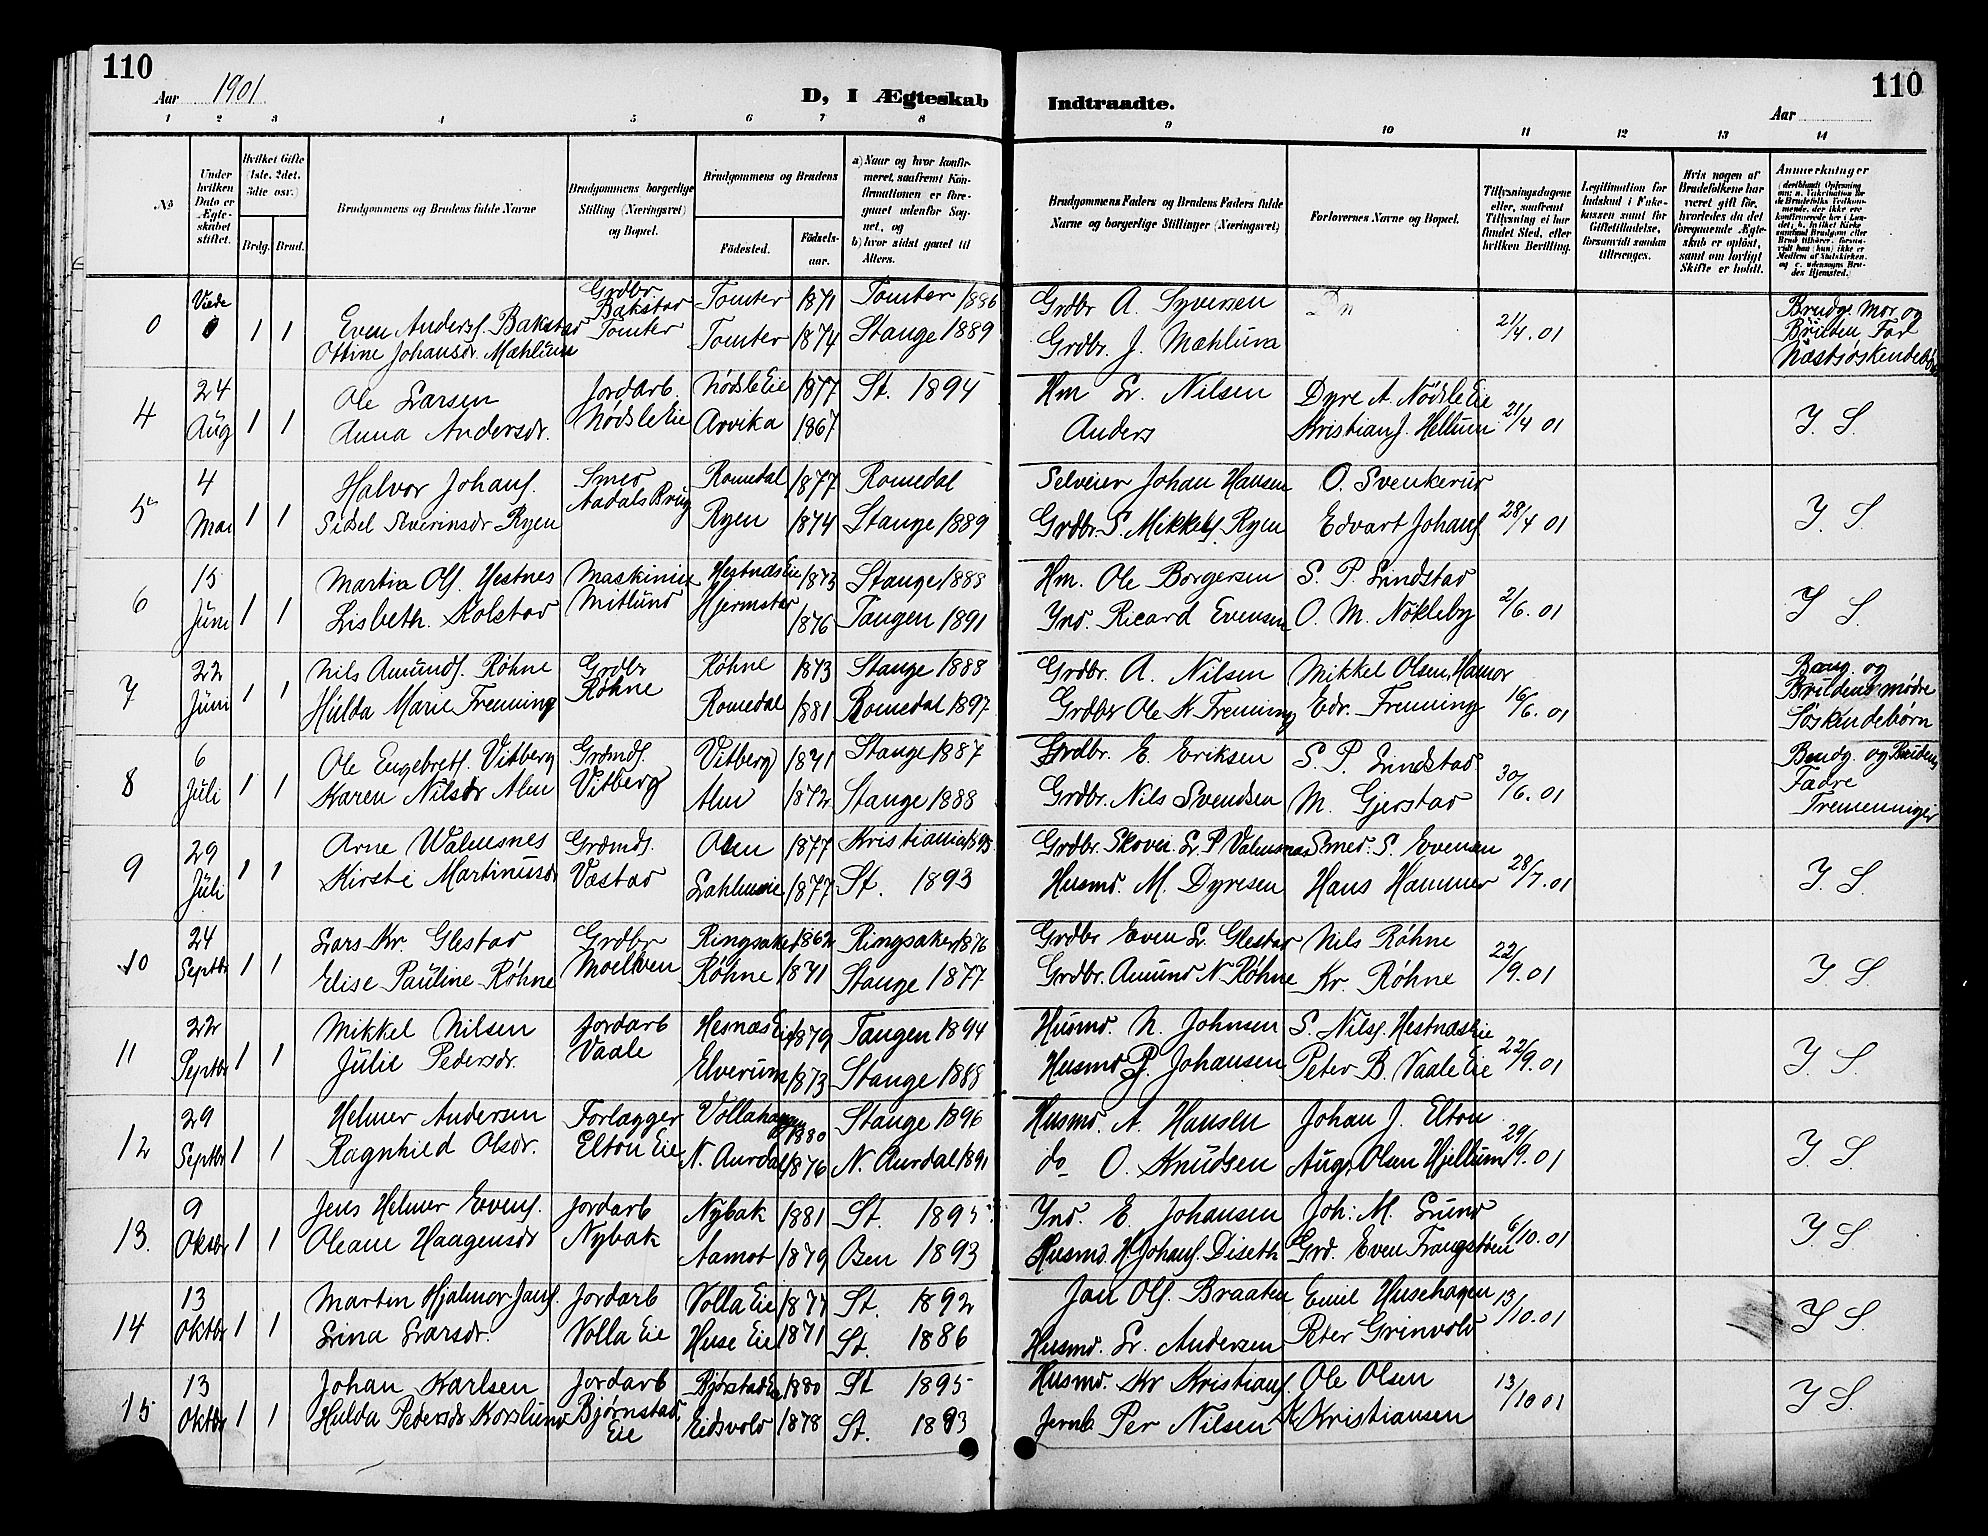 110
Aar 1901
D, I Ægteskab
Indtraadte.
Aar
110
1 2 3 4 5 6 7 8 9 10 11 12 13 14
No
Under hvilken Dato er Ægteskabet stiftet.
Hvilket Gifte (1ste. 2det. 3die osv.)
Brdg. Brud.
Brudgommens og Brudens fulde Navne
Brudgommens borgerlige Stilling (Næringsvei) og Bopæl.
Brudgommens og Brudens
Fødested.
Fødselsaar.
a) Naar og hvor konfirmeret, saafremt Konfirmationen er foregaaet udenfor Sognet, og
b) hvor sidst gaaet til Alters.
Brudgommens Faders og Brudens Faders fulde Navne og borgerlige Stillinger (Næringsvei)
Forlovernes Navne og Bopæl.
Tillysningsdagene eller, saafremt Tillysning ei har fundet Sted, efter hvilken Bevilling.
Legitimation for Indskud i Enkekassen samt for Giftetilladelse, forsaavidt saadan tiltrænges.
Hvis nogen af Brudefolkene har været gift før, hvorledes da det foregaaende Ægteskab er opløst, samt om lovligt Skifte er holdt.
Anmerkninger
0 1 1 Even Anders. Bakstad Grdbr Bakstad Tomter 1871 Tomter 1886 Grdbr A. Syversen 21/4 01 Brudg. Mor og
Ottine Johansdr. Mæhlum Tomter Tomter 1874 Stange 1889 Grdbr. J. Mæhlum Bruden Far
Næstsøskendebørn
4 24 1 1 Ole Larsen Jordarb. Nødsle Eie 1877 St. 1894 Hm L. Nilsen Dyre A. Nødsle Eie 21/4 01 I. S.
Aug Anna Andersdr. Nødsle Eie Arvika 1867 Anders Kristian J. Hellum
5 4 1 1 Halvor Johans. Smed Romedal 1877 Romedal Selveier Johan Hansen O. Svenkerud 28/4 01 I. S.
Mai Sidsel Sverinsdr Ryen Aadals Brug Ryen 1874 Stange 1889 Grdbr. S. Mikkels. Ryen Edvart Johans.
6 15 1 1 Martin Ols. Hestnes Maskinist Hestnæs Eie 1873 Stange 1888 Hm. Ole Borgersen S. P. Lindstad 2/6. 01 I S.
Juni Lisbeth. Kolstad Mitlund Hjermstad 1876 Tangen 1891 Ind. Ricard Evensen O. M. Nøkleby
7 22 1 1 Nils Amunds. Røhne Grdbr Røhne 1873 Stange 1888 Grdbr. A. Nilsen Mikkel Olsen Hamar 16/6. 01 Brudg og
Juni Hulda Marie Frenning Røhne Romedal 1881 Romedal 1897 Grdbr Ole K. Frenning Edv. Frenning Brudens mødre
Söskendebørn
8 6 1 1 Ole Engebrets. Vitberg Grdmds. Vitberg 1871 Stange 1887 Grdbr. E. Eriksen S. P. Lindstad 30/6. 01 Brudg. og Brudens
Juli Karen Nilsdr Alm Vitberg Alm 1872 Stange 1888 Grdbr. Nils Svendsen M. Gjerstad Fædre
Tremenninger
9 29 1 1 Arne Walmsnes Grdmds. Alm 1877 Kristiania Grdbr. Skovei. L. P. Valmsnæs Smed. S. Evensen 28/7. 01 I. S.
Juli Kirsti Martinusdr Væstad 1877 St. 1893 Husmd. M. Dyresen Hans Hammer
10 24 1 1 Lars Kr. Glestad Grdbr Ringsaker 1862 Ringsaker 1876 Grdbr Even L. Glestad Nils Røhne 22/9. 01 I S.
Septbr Elise Pauline Røhne Moelven Røhne 1871 Stange 1877 Grdbr. Amund N. Røhne Kr. Røhne
11 22 1 1 Mikkel Nilsen Jordarb Hesnæs Eie 1879 Tangen 1894 Husmd. N. Johnsen S. Nils. Hestnæs Eie 22/9. 01 I S.
Septbr Julie Pedersdr. Vaale Elverum 1873 Stange 1888 Husmd P. Johansen Peter B. Vaale Eie
12 29 1 1 Helmer Andersen Forlægger Vollahagen 1880 Stange 1896 Husmd. A. Hansen Johan J. Elton 29/9. 01 I. S.
Septbr Ragnhild Olsdr. Elton Eie N. Aurdal 1876 N. Aurdal 1891 do O. Knudsen Aug. Olsen Hjellum
13. 9 1 1 Jens Helmer Evens. Jordarb Nybak 1881 St. 1895 Ind. E. Johansen Joh: M. Lund 6/10. 01 I. S.
Oktbr Oleane Haagensdr Nybak Aamot 1879 Ben 1893 Husmd. H Johans. Diseth Grd. Even Frangstøen
14 13 1 1 Marten Hjalmar Jans. Jordarb Volla Eie 1877 St. 1892 Jan Ols. Braaten Emil Husehagen 13/10. 01 I S.
Oktbr Lina Larsdr. Volla Eie Huse Eie 1871 St. 1886 Husmd. L. Andersen Peter Grinvold
15 13 1 1 Johan Karlsen Jordarb Bjørstad Eie 1880 St 1895 Husmd. Kr Kristians. Ole Olsen 13/10 01 I S.
Oktbr Hulda Pedersdr Korslund Bjørnstad Eie Eidsvold 1878 St. 1893 Jernb. Per Nilsen K Kristiansen